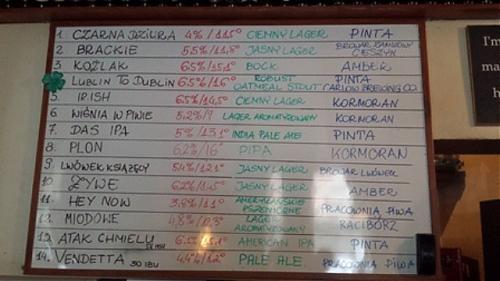 1. CZARNA DZIURA 4% / 11,5° CIEMNY LAGER PINTA
2. BRACKIE 5,5% / 11,8° JASNY LAGER BROWAR ZAMKOWY CIESZYN
3. KOŹLAK 6,5% / 15,1° BOCK AMBER
LUBLIN TO DUBLIN 6,5% / 16° ROBUST OATMEAL STOUT PINTA CARLOW BREWING CO.
5. IRISH 6,5% / 14,5° CIEMNY LAGER KORMORAN
6. WIŚNIA W PIWIE 5,2% / 9 LAGER AROMATYZOWANY KORMORAN
7. DAS IPA 5% / 13,1° INDIA PALE ALE PINTA
8. PLON 6,2% / 16° PIPA KORMORAN
9. LWÓWEK KSIĄŻĘCY 5,4% / 12,1° JASNY LAGER BROWAR LWÓWEK
10. ŻYWE 6,2% JASNY LAGER AMBER
11. HEY NOW 3,9% / 11° AMERYKAŃSKIE PSZENICZNE PRACOWNIA PIWA
12. MIODOWE 4,8% LAGER AROMATYZOWANY RACIBÓRZ
13. ATAK CHMIELU AMERICAN IPA PINTA
14. VENDETTA 30 IBU 4,4% / 12° PALE ALE PRACOWNIA PIWA
I'm